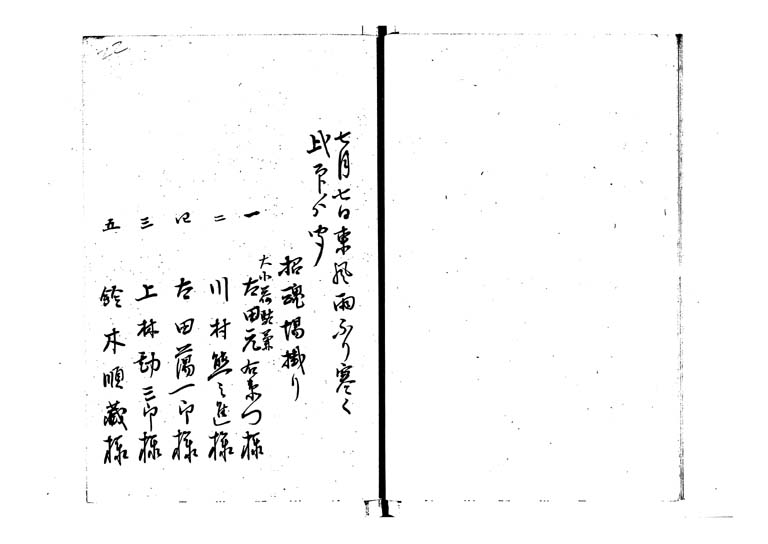 七月七日東風雨ふり寒く
招魂場掛り
大小荷駄兼
一 古田元右衛門様
二 川村熊之進様
四 古田蕩一郎様
三 上林勁三郎様
五 鈴木順蔵様